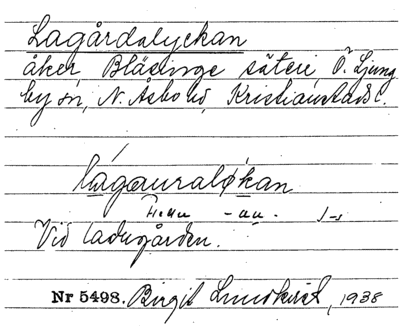 Lagårdalyckan
åker Bläsinge säteri, Ö. Ljung
by sn, N. Åsbo hd, Kristianstads l.
lágauraløkan
Vid ladugården.
Nr 5498. Birgit Lundkvist, 1938